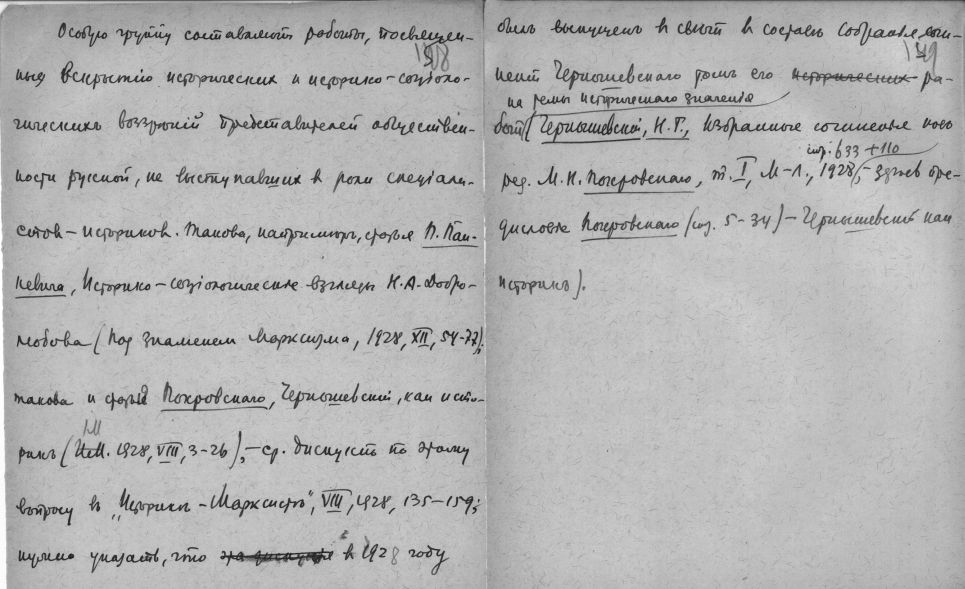 198
Особую группу составляют работы, посвящен-
ные вскрытию исторических и историко-соціоло-
гических воззрѣній представителей обществен-
ности русской, не выступавших в роли спеціали-
стов-историков. Такова, например, статья П. Пан-
кевича, Историко-соціологические взгляды Н.А. Добро-
любова (Под знаменем Марксизма, 1928, XII, 54-77);
такова и статья Покровского, Чернышевский, как исто-
рикъ (ИМ. 1928, VIII, 3-26), - ср. дискуссію по этому
вопросу въ "Историкъ-Марксистъ", VIII, 1928, 135-159;
нужно указать, что в 1928 году
199
былъ выпущенъ в свѣтъ в составѣ собранія сочи-
неній Чернышевского томъ его исторических ра-
на темы исторического значенія
бот (Чернышевский, Н.Г., Избранные сочинения под
стр. 633 + 110
ред. М.Н. Покровского, т. I, М-Л., 1928), - здѣсь пре-
дисловіе Покровского (стр. 5-34) - Чернышевский как
историкъ).